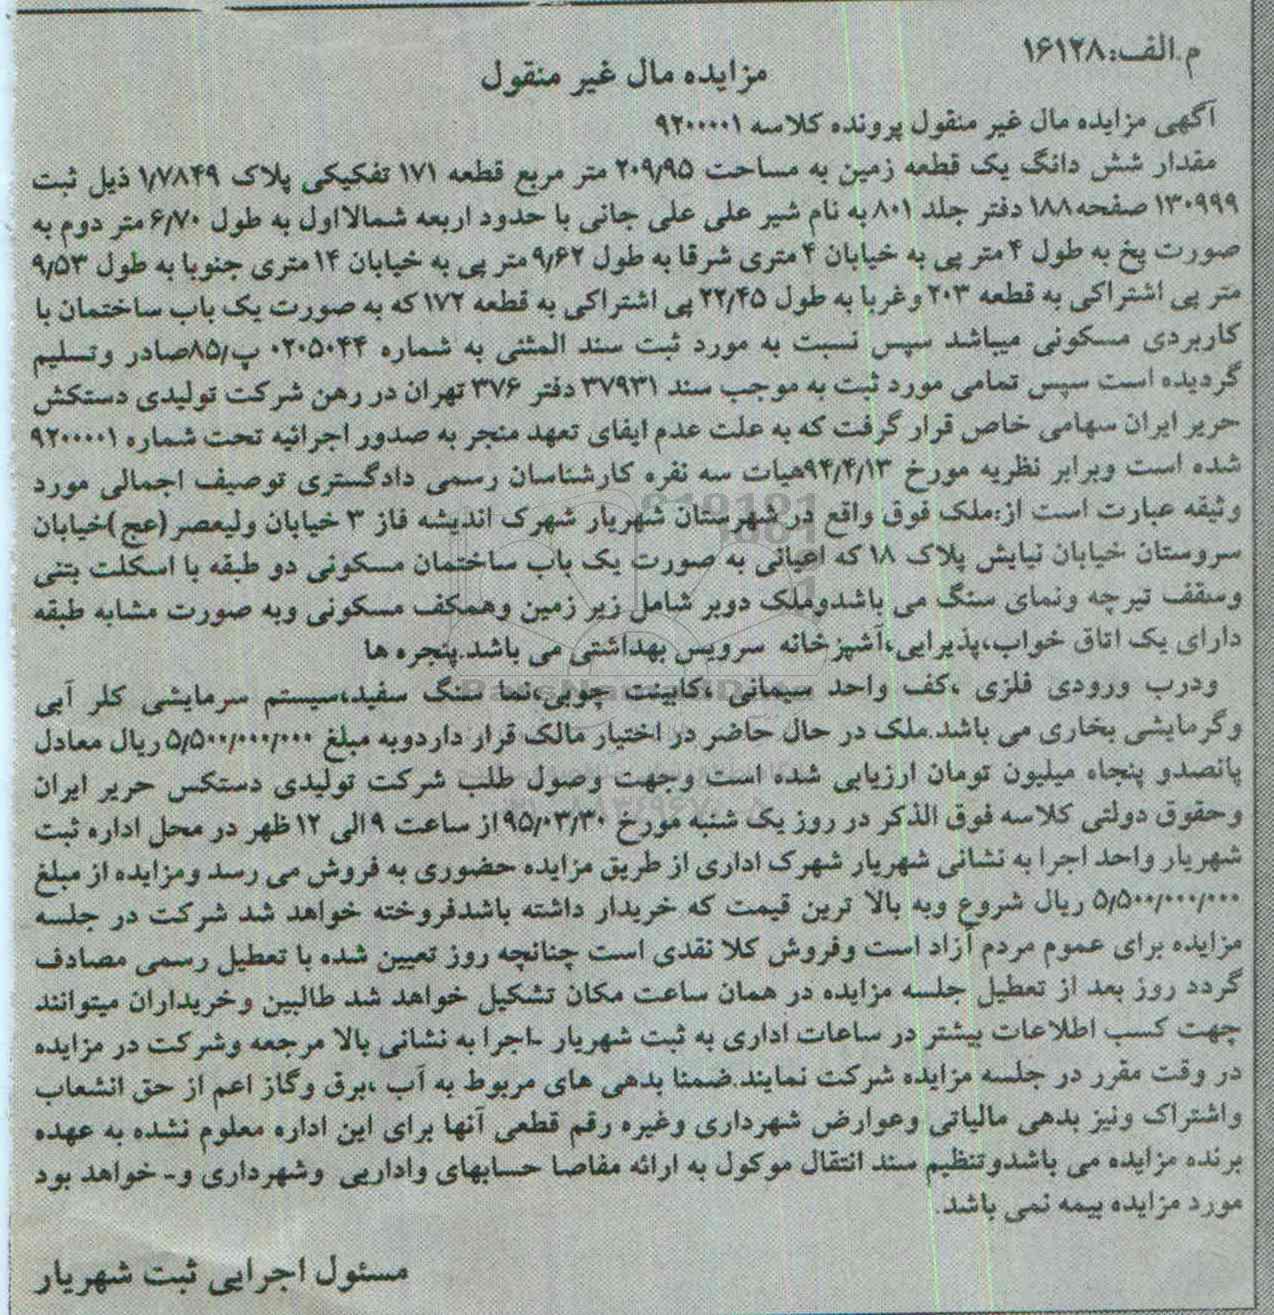 م.الف:۱۶۱۲۸
مزایده مال غیر منقول
آگهی مزایده مال غیر منقول پرونده کلاسه ۹۲۰۰۰۰۱
مقدار شش دانگ یک قطعه زمین به مساحت ۲۰۹/۹۵ متر مربع قطعه ۱۷۱ تفکیکی پلاک ۱/۷۸۴۹ ذیل ثبت
۱۳۰۹۹۹ صفحه۱۸۸ دفتر جلد ۸۰۱ به نام شیر علی علی جانی با حدود اربعه شمالا اول به طول ۶/۷۰ متر دوم به
صورت پخ به طول ۴ متر پی به خیابان ۴ متری شرقا به طول ۹/۶۲ متر پی به خیابان ۱۴ متری جنوبا به طول ۹/۵۳
متر پی اشتراکی به قطعه ۲۰۳ وغربا به طول ۲۲/۴۵ پی اشتراکی به قطعه ۱۷۲ که به صورت یک باب ساختمان با
کاربردی مسکونی میباشد سپس نسبت به مورد ثبت سند المثنی به شماره ۰۲۰۵۰۴۴ پ/۸۵صادر وتسلیم
گردیده است سپس تمامی مورد ثبت به موجب سند ۳۷۹۳۱ دفتر ۳۷۶ تهران در رهن شرکت تولیدی دستکش
حریر ایران سهامی خاص قرار گرفت که به علت عدم ایفای تعهد منجر به صدور اجرائیه تحت شماره ۹۲۰۰۰۰۱
شده است وبرابر نظریه مورخ ۹۴/۴/۱۳هیات سه نفره کارشناسان رسمی دادگستری توصیف اجمالی مورد
وثیقه عبارت است از:ملک فوق واقع در شهرستان شهریار شهرک اندیشه فاز ۳ خیابان ولیعصر(عج)خیابان
سروستان خیابان نیایش پلاک ۱۸ که اعیانی به صورت یک باب ساختمان مسکونی دو طبقه با اسکلت بتنی
وسقف تیرچه ونمای سنگ می باشدوملک دوبر شامل زیر زمین وهمکف مسکونی وبه صورت مشابه طبقه
دارای یک اتاق خواب،پذیرایی،آشپزخانه سرویس بهداشتی می باشد.پنجره ها
ودرب ورودی فلزی ،کف واحد سیمانی ،کابینت چوبی،نما سنگ سفید،سیستم سرمایشی کلر آبی
وگرمایشی بخاری می باشد.ملک در حال حاضر در اختیار مالک قرار داردوبه مبلغ ۵/۵۰۰/۰۰۰/۰۰۰ ریال معادل
پانصدو پنجاه میلیون تومان ارزیابی شده است وجهت وصول طلب شرکت تولیدی دستکس حریر ایران
وحقوق دولتی کلاسه فوق الذکر در روز یک شنبه مورخ ۹۵/۰۳/۳۰از ساعت ۹ الی ۱۲ ظهر در محل اداره ثبت
شهریار واحد اجرا به نشانی شهریار شهرک اداری از طریق مزایده حضوری به فروش می رسد ومزایده از مبلغ
۵/۵۰۰/۰۰۰/۰۰۰ ریال شروع وبه بالا ترین قیمت که خریدار داشته باشدفروخته خواهد شد شرکت در جلسه
مزایده برای عموم مردم آزاد است وفروش کلا نقدی است چنانچه روز تعیین شده با تعطیل رسمی مصادف
گردد روز بعد از تعطیل جلسه مزایده در همان ساعت مکان تشکیل خواهد شد طالبین وخریداران میتوانند
جهت کسب اطلاعات بیشتر در ساعات اداری به ثبت شهریار -اجرا به نشانی بالا مرجعه وشرکت در مزایده
در وقت مقرر در جلسه مزایده شرکت نمایند.ضمنا بدهی های مربوط به آب ،برق وگاز اعم از حق انشعاب
واشتراک ونیز بدهی مالیاتی وعوارض شهرداری وغیره رقم قطعی آنها برای این اداره معلوم نشده به عهده
برنده مزایده می باشدوتنظیم سند انتقال موکول به ارائه مفاصا حسابهای واداریی وشهرداری و- خواهد بود
مورد مزایده بیمه نمی باشد.
مسئول اجرایی ثبت شهریار